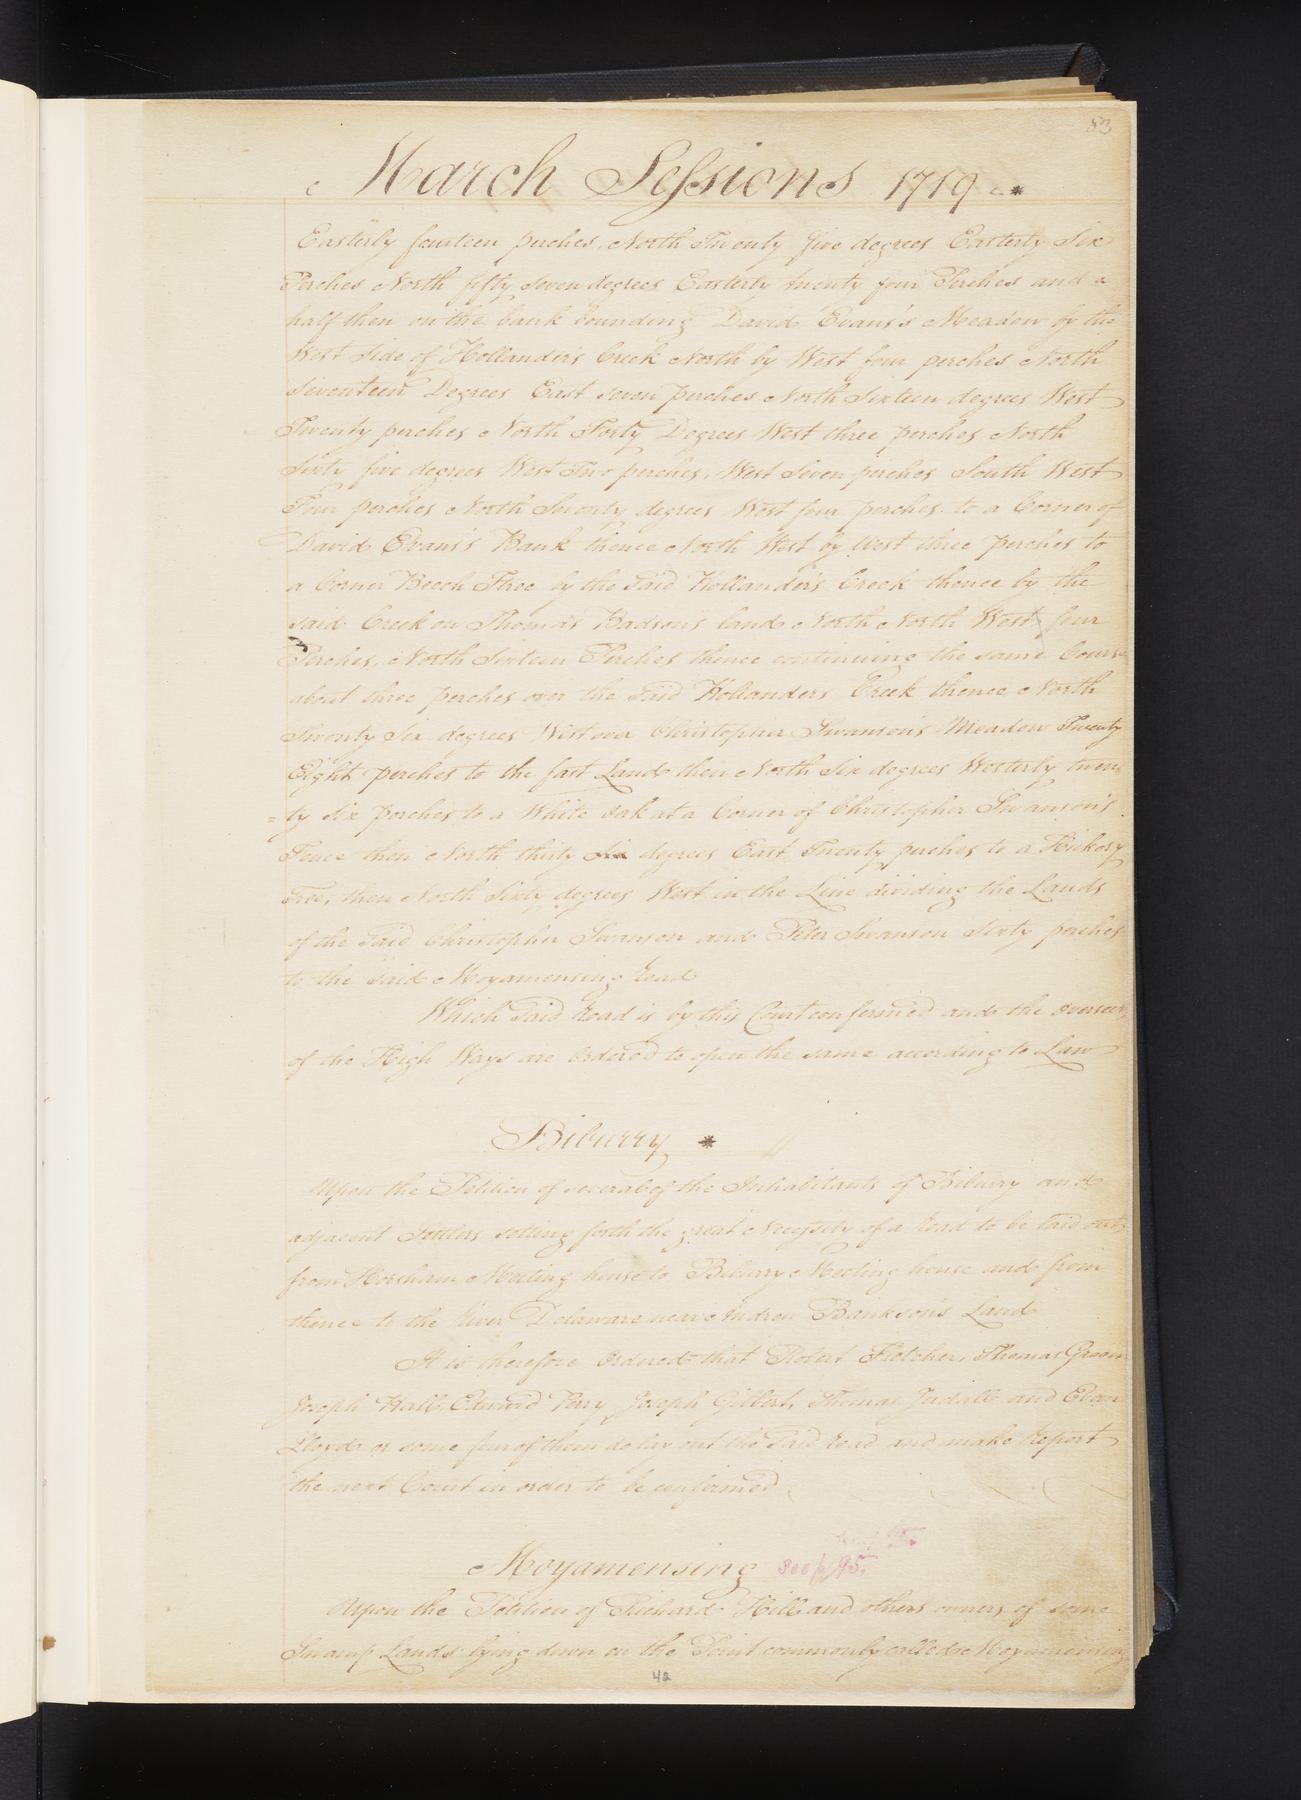 83
March Sessions 1719
Easterly fourteen perches, North Twenty five degrees Easterly Six
Perches North fifty Seven degrees Easterly twenty four Perches and a
half then on the bank bounding David Evans's Meadow by the
West Side of Hollander's Creek North by West four perches North
Seventeen Degrees East seven perches North Sixteen degrees West
Twenty perches North Forty Degrees West three perches North
Sixty five degrees West Two perches, West Seven perches South West
Four perches North Seventy degrees West four perches to a Corner of
David Evans's Bank thence North West by West three perches to
a Corner Beech Tree by the Said Hollander's Creek thence by the
said Creek on Thomas Badson's land North North West four
Perches, North Sixteen Perches thence continuing the same Course
about three perches over the Said Hollanders Creek thence North
Twenty Six degrees West over Christopher Swanson's Meadow Twenty
Eight perches to the fast Land then North Six degrees Westerly twen
=ty six perches to a White Oak at a Corner of Christopher Swanson's
Fence then North thirty Six degrees East Twenty perches to a Hickory
Tree, then North Sixty degrees West in the Line dividing the Lands
of the Said Christopher Swanson and Peter Swanson Sixty perches
to the Said Moyamensing road
Which Said Road is by this Court confermed and the overseers
of the High Ways are Ordered to open the same according to Law
Biburry *
Upon the Petition of several of the Inhabitants of Biburry and
adjacent Settlers setting forth the great Necessity of a road to be laid out
from Horsham Meeting house to Biburry Meeting house and from
thence to the River Delaware near Andrew Bankson's Land
It is therefore Ordered that Robert Fletcher, Thomas Groom
Joseph Hall, Edward Perry Joseph Gilbert, Thomas Judall and Evan
Lloyd or some four of them do lay out the Said road and make Report
the next Court in order to be confirmed
Moyamensing See p 95.
Upon the Petition of Richard Hill and others owners of some
Swamp Lands lying down on the Point commonly called Moyamensing
42